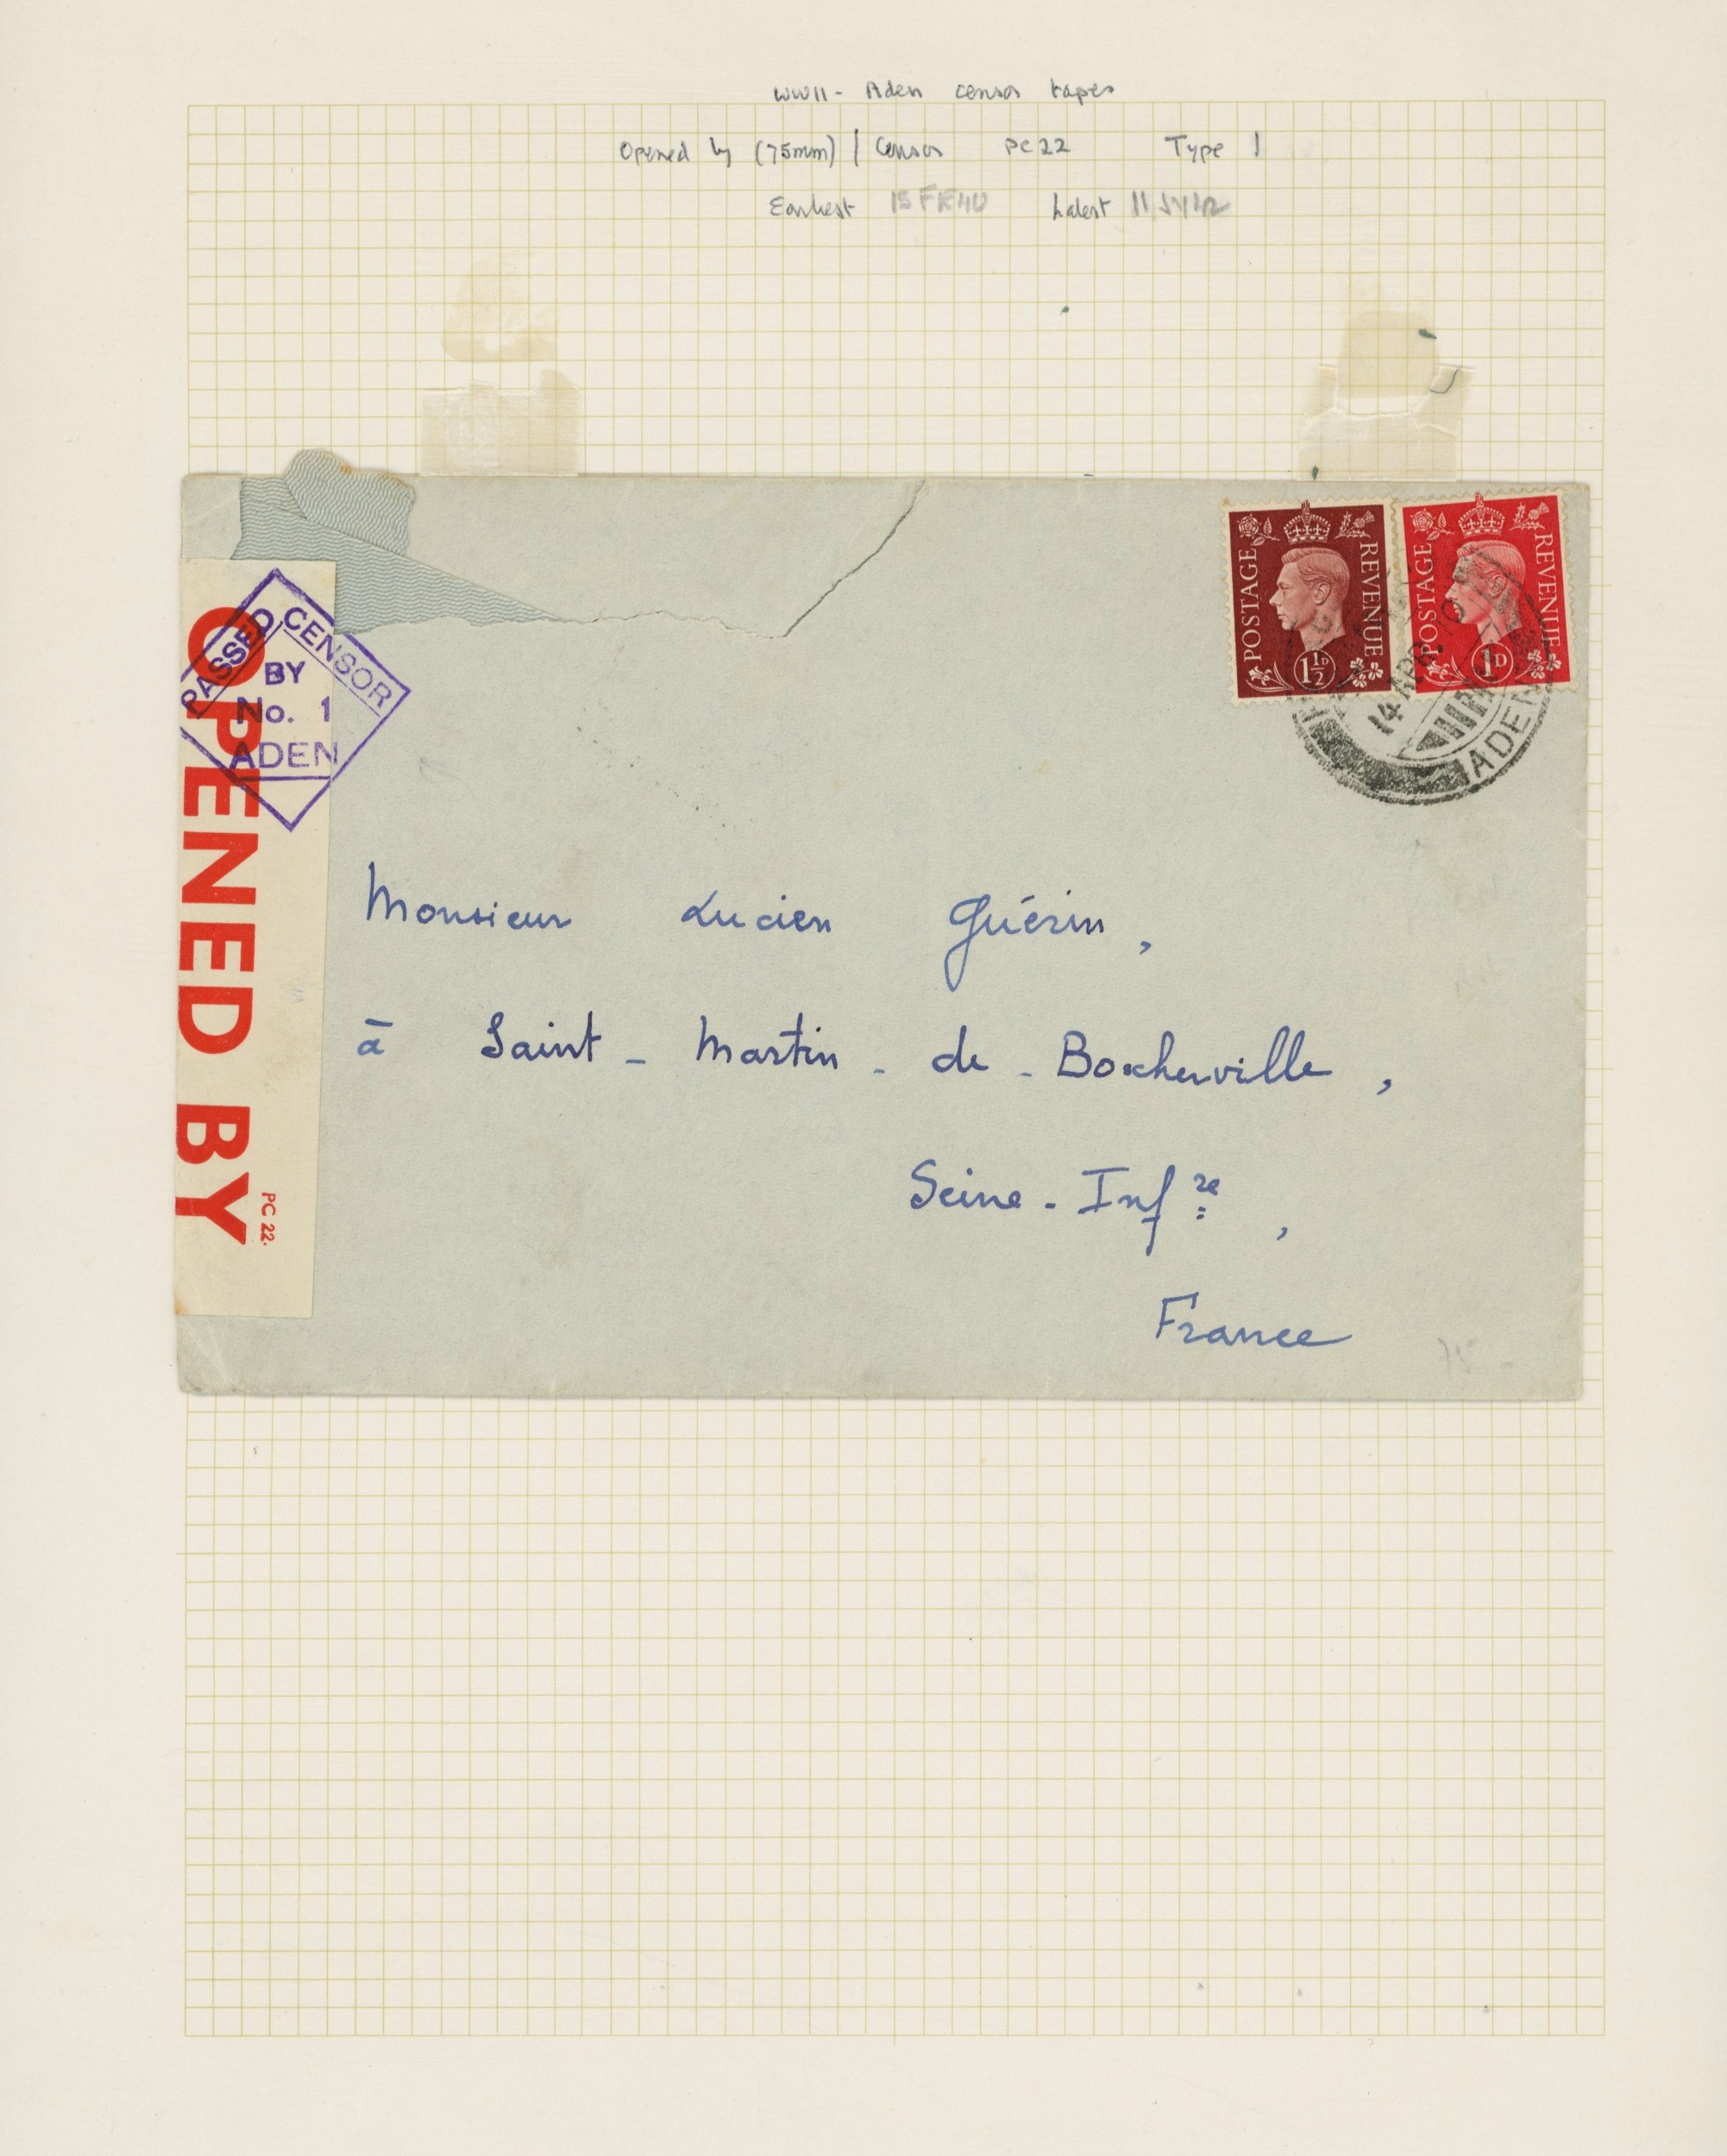 WWII - Aden censor tapes
Opened by (75mm) / Censor PC22 Type 1
Earliest 15 FE 40 Latest 11 JY 42
POSTAGE REVENUE
1½D
POSTAGE REVENUE
1D
14 APR. 40
ADEN
PASSED CENSOR
BY
No. 1
ADEN
OPENED BY
PC 22.
Monsieur Lucien Guérin,
à Saint-Martin-de-Boscherville,
Seine-Infre,
France
75